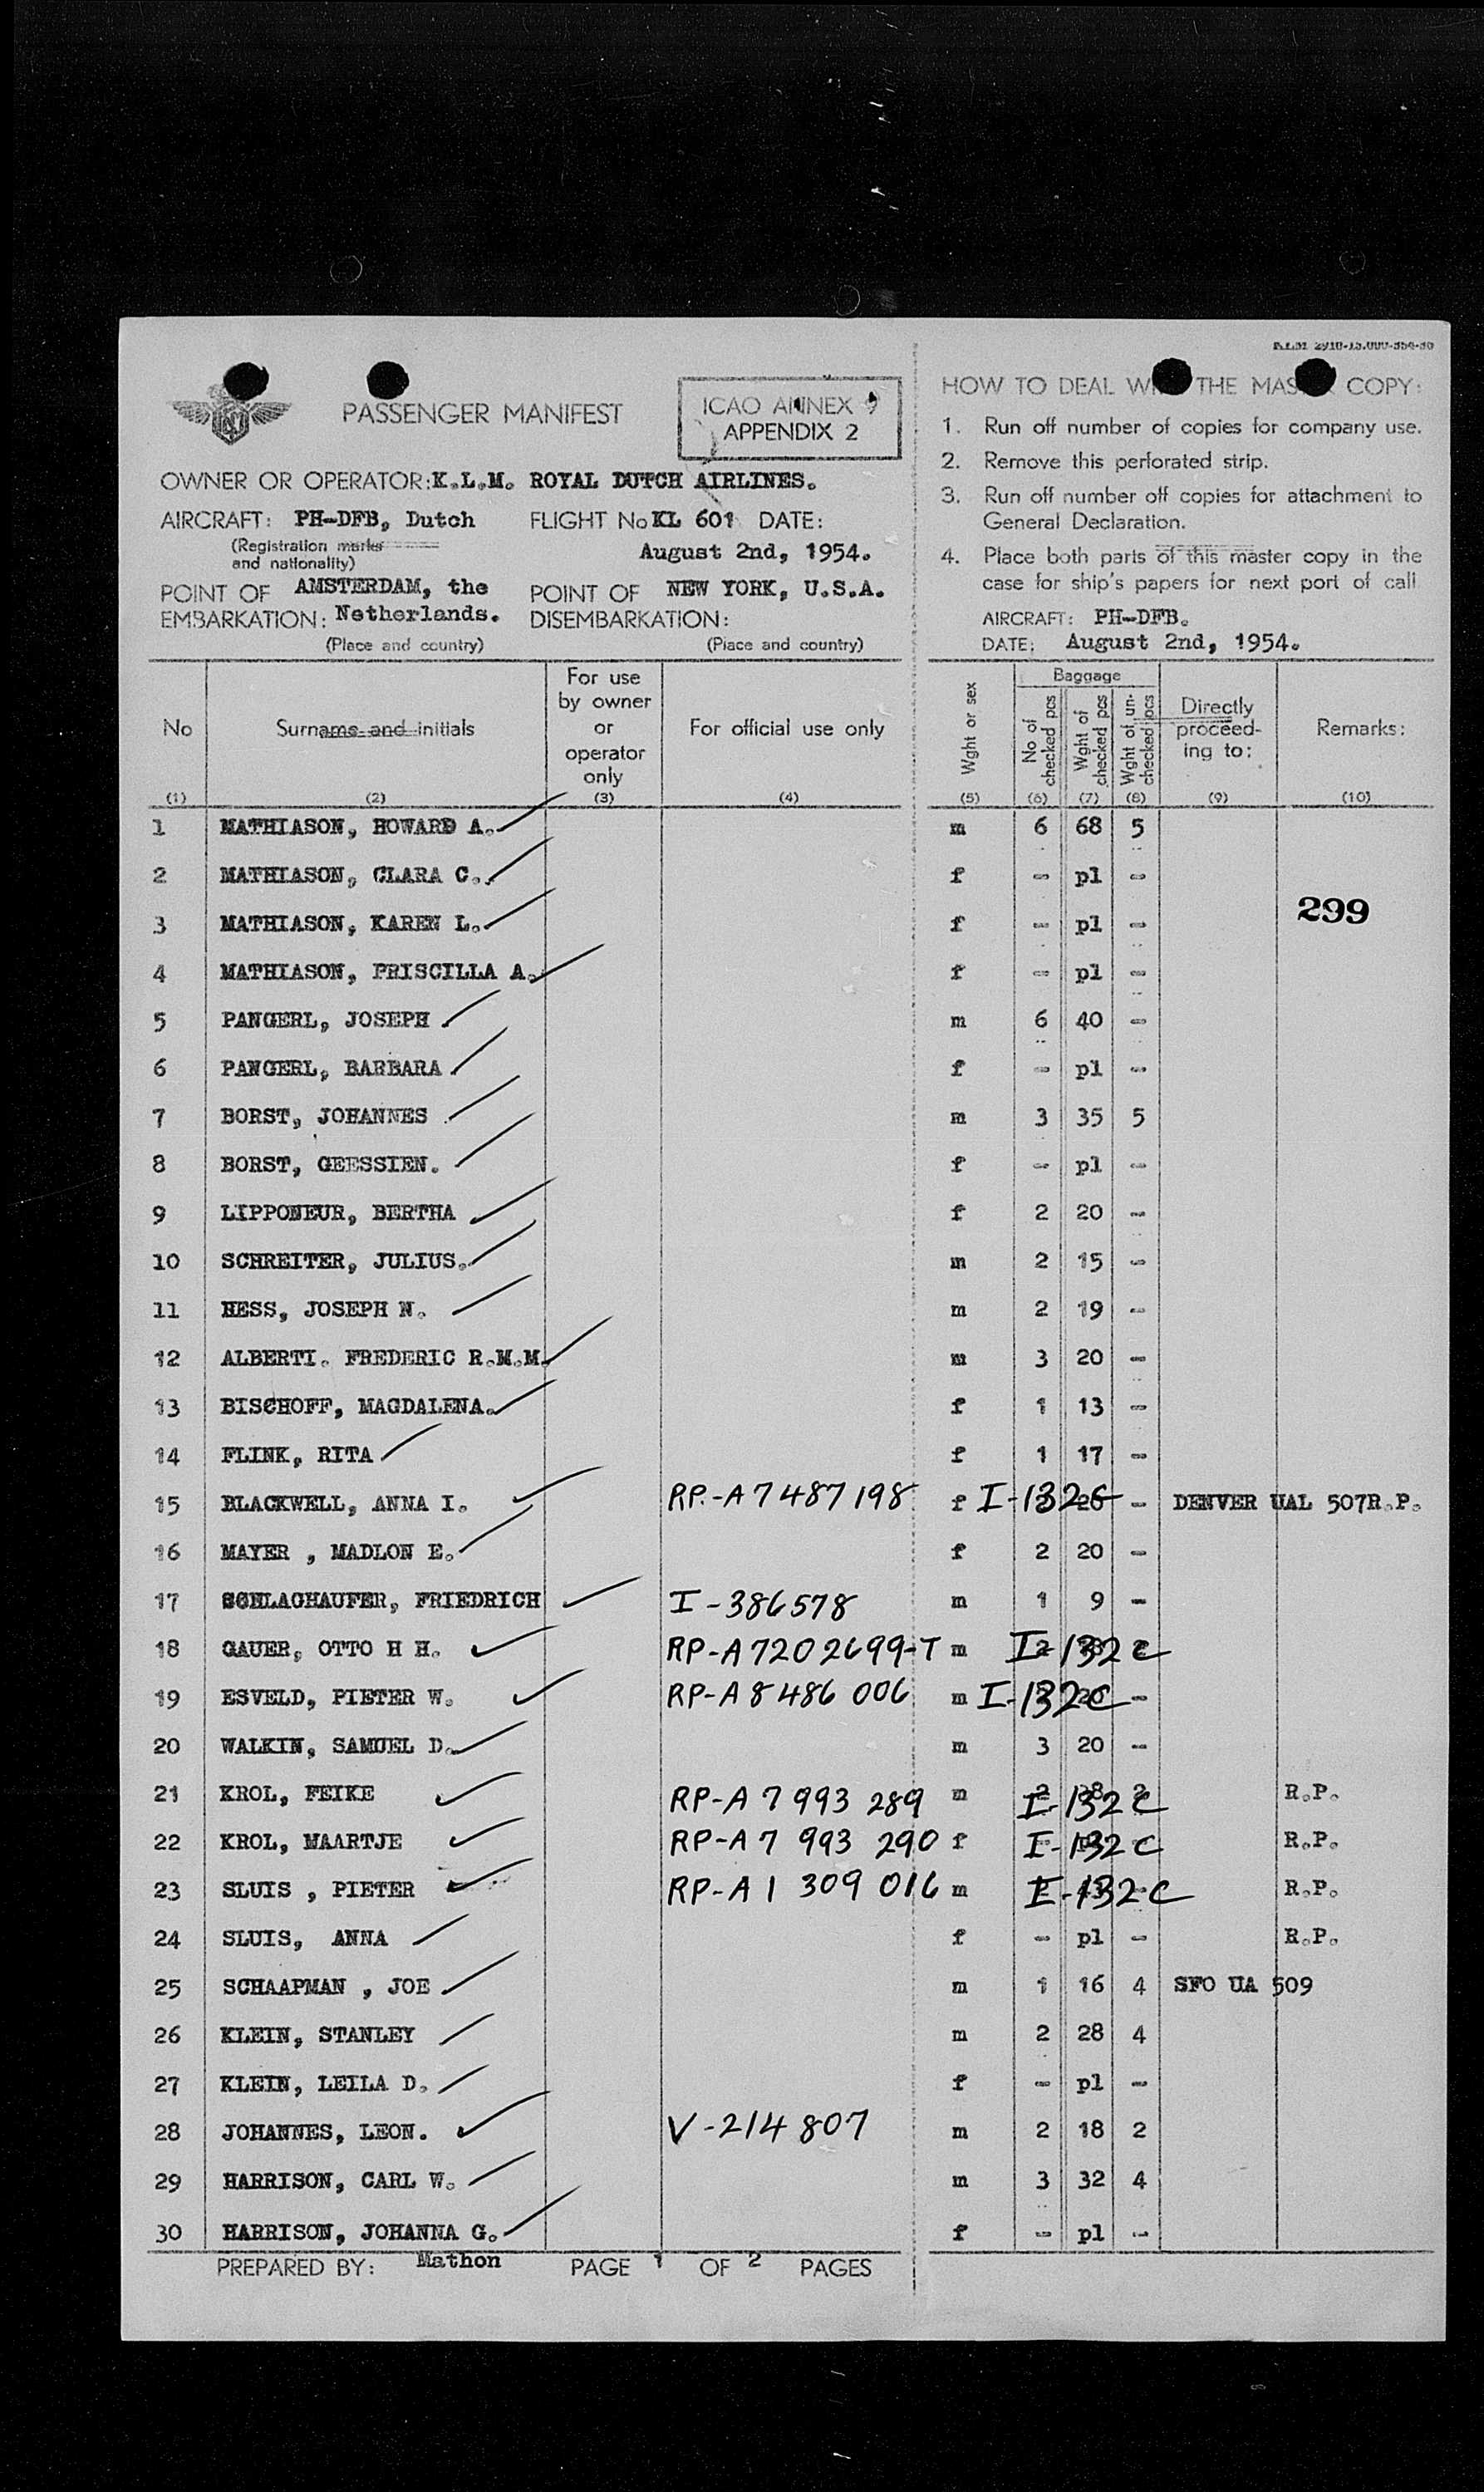 K.L.M. 2910-15.000-354-30
PASSENGER MANIFEST
ICAO ANNEX 9
APPENDIX 2
OWNER OR OPERATOR: K.L.M. ROYAL DUTCH AIRLINES.
AIRCRAFT: PH-DFB, Dutch FLIGHT No KL 601 DATE:
(Registration marks
and nationality)
August 2nd, 1954.
POINT OF AMSTERDAM, the POINT OF NEW YORK, U.S.A.
EMBARKATION: Netherlands. DISEMBARKATION:
(Place and country) (Place and country)
HOW TO DEAL THE COPY:
1. Run off number of copies for company use.
2. Remove this perforated strip.
3. Run off number off copies for attachment to
General Declaration.
4. Place both parts of this master copy in the
case for ship's papers for next port of call
AIRCRAFT: PH-DFB.
DATE: August 2nd, 1954.
No Surname and initials For use by owner or operator only For official use only Wght or sex Baggage No of checked pcs Wght of checked pcs Wght of un-checked pcs Directly proceed-ing to: Remarks:
(1) (2) (3) (4) (5) (6) (7) (8) (9) (10)
1 MATHIASON, HOWARD A. m 6 68 5
2 MATHIASON, CLARA C. f - pl -
299
3 MATHIASON, KAREN L. f - pl -
4 MATHIASON, PRISCILLA A. f - pl -
5 PANGERL, JOSEPH m 6 40 -
6 PANGERL, BARBARA f - pl -
7 BORST, JOHANNES m 3 35 5
8 BORST, GEESSIEN. f - pl -
9 LIPPONEUR, BERTHA f 2 20 -
10 SCHREITER, JULIUS. m 2 15 -
11 HESS, JOSEPH N. m 2 19 -
12 ALBERTI. FREDERIC R.M.M. m 3 20 -
13 BISCHOFF, MAGDALENA. f 1 13 -
14 FLINK, RITA f 1 17 -
15 BLACKWELL, ANNA I. RP.-A7487198 f I-132C - DENVER UAL 507R.P.
16 MAYER , MADLON E. f 2 20 -
17 SCHLAGHAUFER, FRIEDRICH I-386578 m 1 9 -
18 GAUER, OTTO H H. RP-A7202699-T m I-132C
19 ESVELD, PIETER W. RP-A8486 006 m I-132C -
20 WALKIN, SAMUEL D. m 3 20 -
21 KROL, FEIKE RP-A7 993 289 m I-132C R.P.
22 KROL, MAARTJE RP-A7 993 290 f I-132C R.P.
23 SLUIS , PIETER RP-A1 309 016 m I-132C R.P.
24 SLUIS, ANNA f - pl - R.P.
25 SCHAAPMAN , JOE m 1 16 4 SFO UA 509
26 KLEIN, STANLEY m 2 28 4
27 KLEIN, LEILA D. f - pl -
28 JOHANNES, LEON. V-214807 m 2 18 2
29 HARRISON, CARL W. m 3 32 4
30 HARRISON, JOHANNA G. f - pl -
PREPARED BY: Mathon PAGE 1 OF 2 PAGES